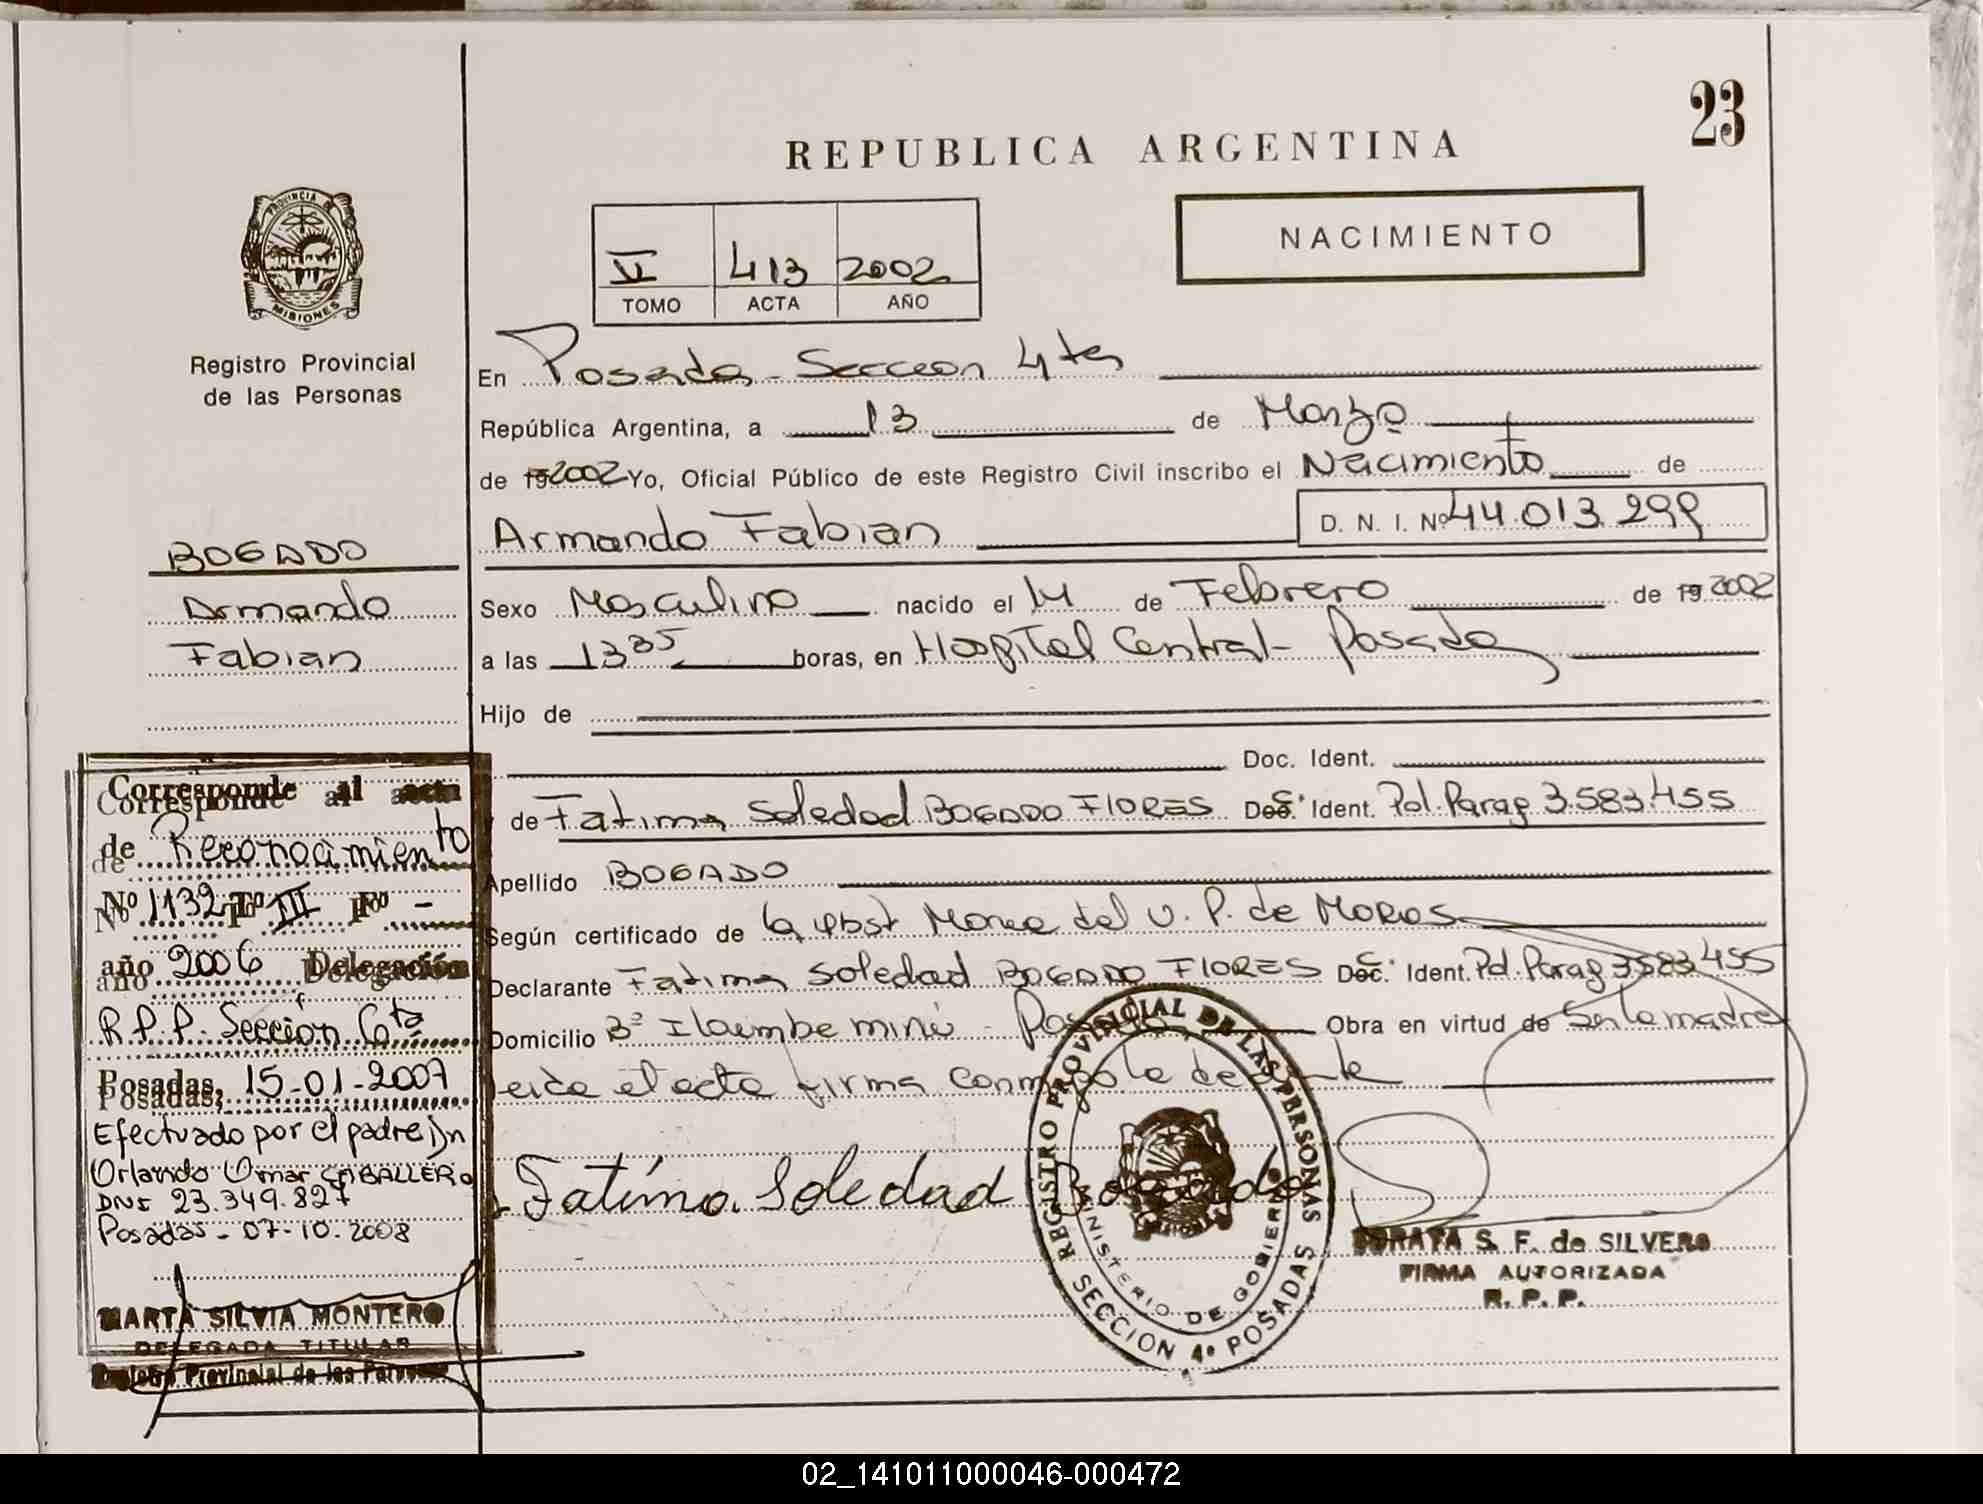 23
REPUBLICA ARGENTINA
NACIMIENTO
VI 413 2002
TOMO ACTA AÑO
PROVINCIA DE
MISIONES
Registro Provincial
de las Personas
En Posadas - Seccion 4ta
República Argentina, a 13 de Marzo
de 19 2002 Yo, Oficial Público de este Registro Civil inscribo el Nacimiento de
Armando Fabian D. N. I. Nº 44.013.299
BOGADO
Armando
Fabian
Sexo Masculino nacido el 14 de Febrero de 19 2002
a las 13 35 horas, en Hospital Central - Posadas
Hijo de
Doc. Ident.
de Fatima Soledad BOGADO FLORES Doc. Ident. Pol. Parag 3.583.455
Apellido BOGADO
Según certificado de la obst Maria del V. P. de MOROS
Declarante Fatima Soledad BOGADO FLORES Doc. Ident. Pol. Parag 3583455
Domicilio Bº Ilaimbe mini - Posadas Obra en virtud de Ser la madre
Leida el acta firma conmigo la declarante
Fatima Soledad Bogado
REGISTRO PROVINCIAL DE LAS PERSONAS
MINISTERIO DE GOBIERNO
SECCION 4ª POSADAS
SORAYA S. F. de SILVERO
FIRMA AUTORIZADA
R. P. P.
Corresponde al acta
de Reconocimiento
Nº 1132 Tº III Fº -
año 2006 Delegación
R.P.P. Sección 6ta
Posadas, 15-01-2007
Efectuado por el padre Dn
Orlando Omar CABALLERO
DNI 23.349.827
Posadas - 07-10-2008
MARTA SILVIA MONTERO
DELEGADA TITULAR
Registro Provincial de las Personas
02_141011000046-000472